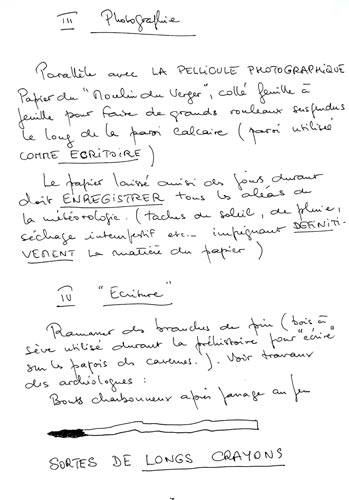 III Photographie
Parallèle avec LA PELLICULE PHOTOGRAPHIQUE
Papier du "Moulin du Verger", collé feuille à
feuille pour faire de grands rouleaux suspendus
le long de la paroi calcaire (paroi utilisée
COMME ECRITOIRE)
Le papier laissé ainsi des jours durant
doit ENREGISTRER tous les aléas de
la météorologie. (taches de soleil, de pluie,
séchage intempestif etc... imprégnant DEFINITI-
VEMENT la matière du papier)
IV "Ecriture"
Ramener des branches de pin (bois à
sève utilisé durant la préhistoire pour "écrire"
sur les parois des cavernes.). Voir travaux
des archéologues :
Bouts charbonneux après passage au feu
SORTES DE LONGS CRAYONS